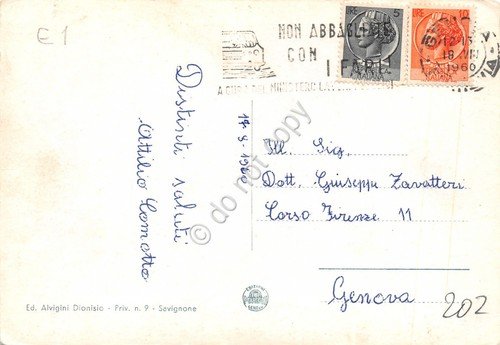 £ 1
NON ABBAGLIATE
CON
I FARI
5
10
18 VIII
1960
Distinti saluti
Attilio Comotto
17-8-1960
Ill. Sig.
Dott. Giuseppe Zavatteri
Corso Firenze 11
Genova
202
do not copy
Ed. Alvigini Dionisio - Priv. n. 9 - Savignone